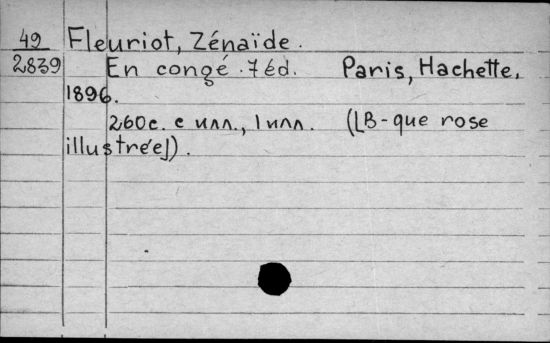 49 Fleuriot, Zénaïde.
2839 En congé. 7 éd. Paris, Hachette,
1896.
260с. с илл., 1 илл. ([B-que rose
illustrée]).